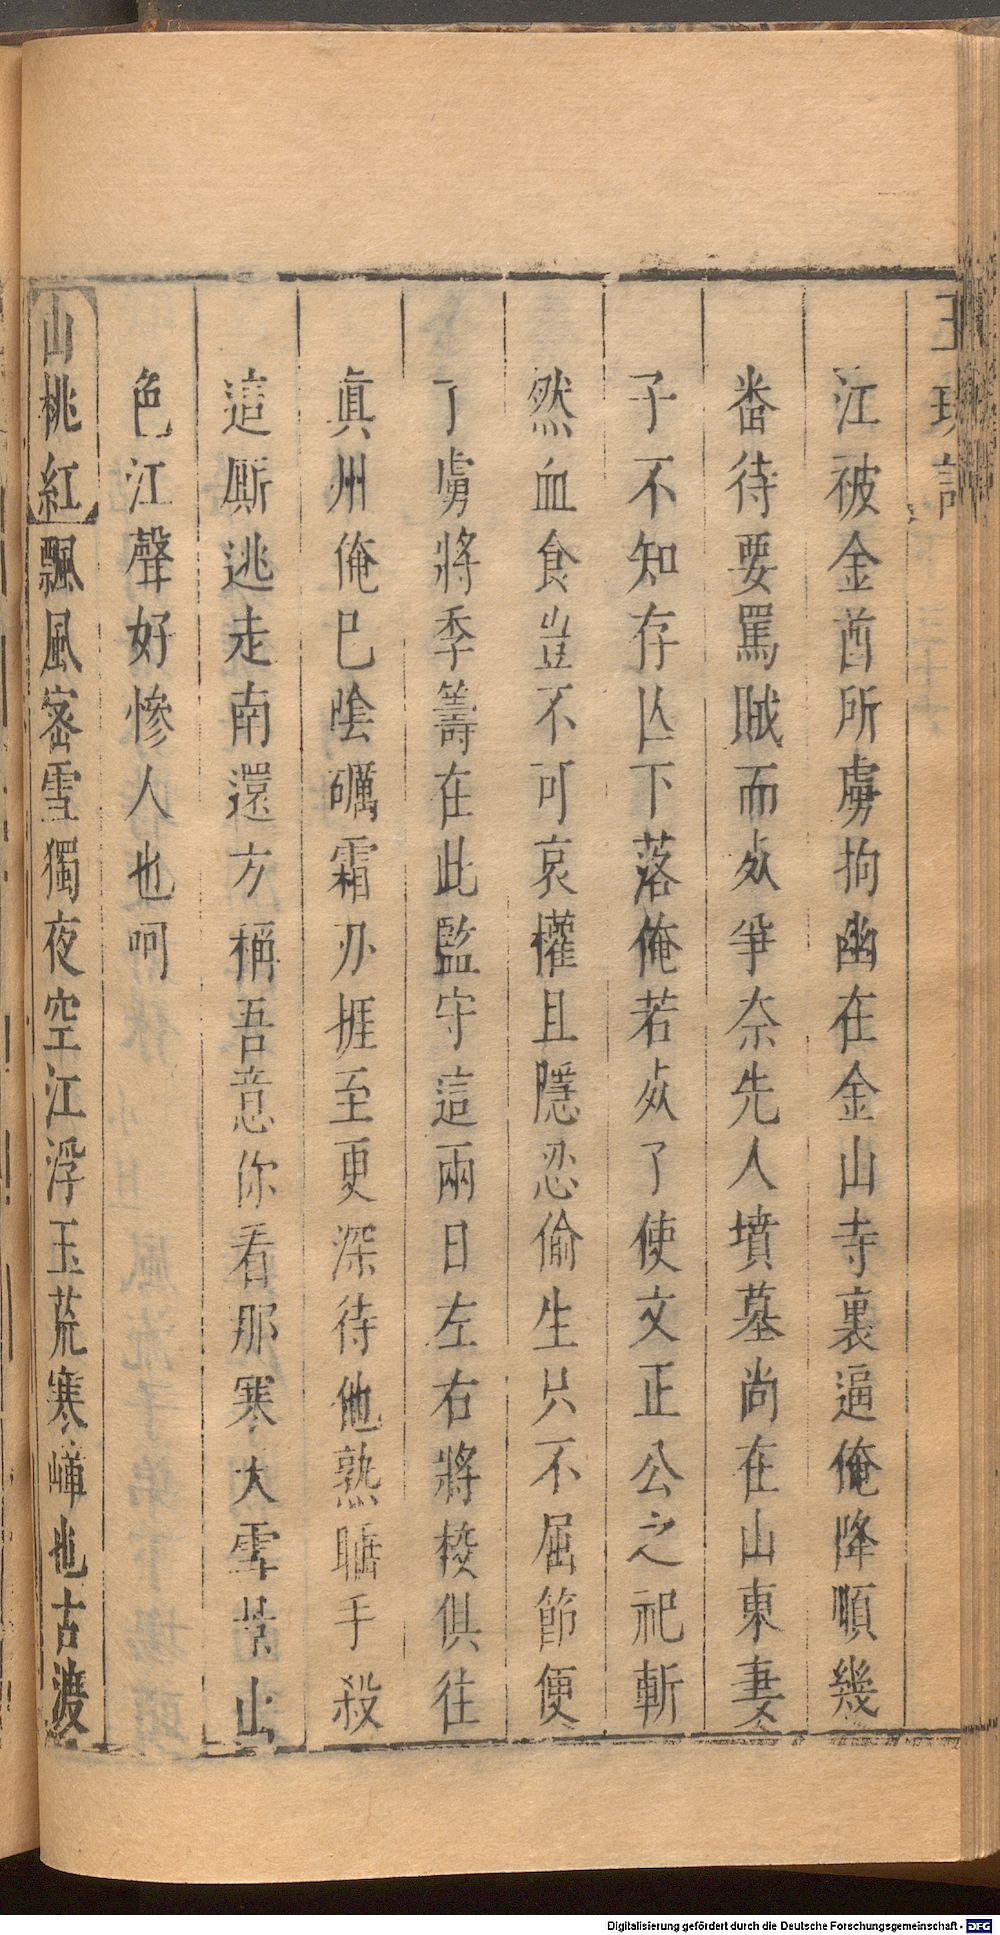 玉玦記
江被金酋所虜拘幽在金山寺裏逼俺降順幾
畨待要罵賊而㱠爭奈先人墳墓尚在山東妻
子不知存亾下落俺若㱠了使文正公之祀斬
然血食豈不可哀權且隱忍偷生只不屈節便
了虜將季籌在此監守這兩日左右將校俱往
眞州俺巳陰礪霜刃捱至更深待他熟睡手殺
這厮逃走南還方稱吾意你看那寒大雪苦山
色江聲好慘人也呵
山桃紅飄風宻雪獨夜空江浮玉荒寒嶂也古渡
Digitalisierung gefördert durch die Deutsche Forschungsgemeinschaft - DFG